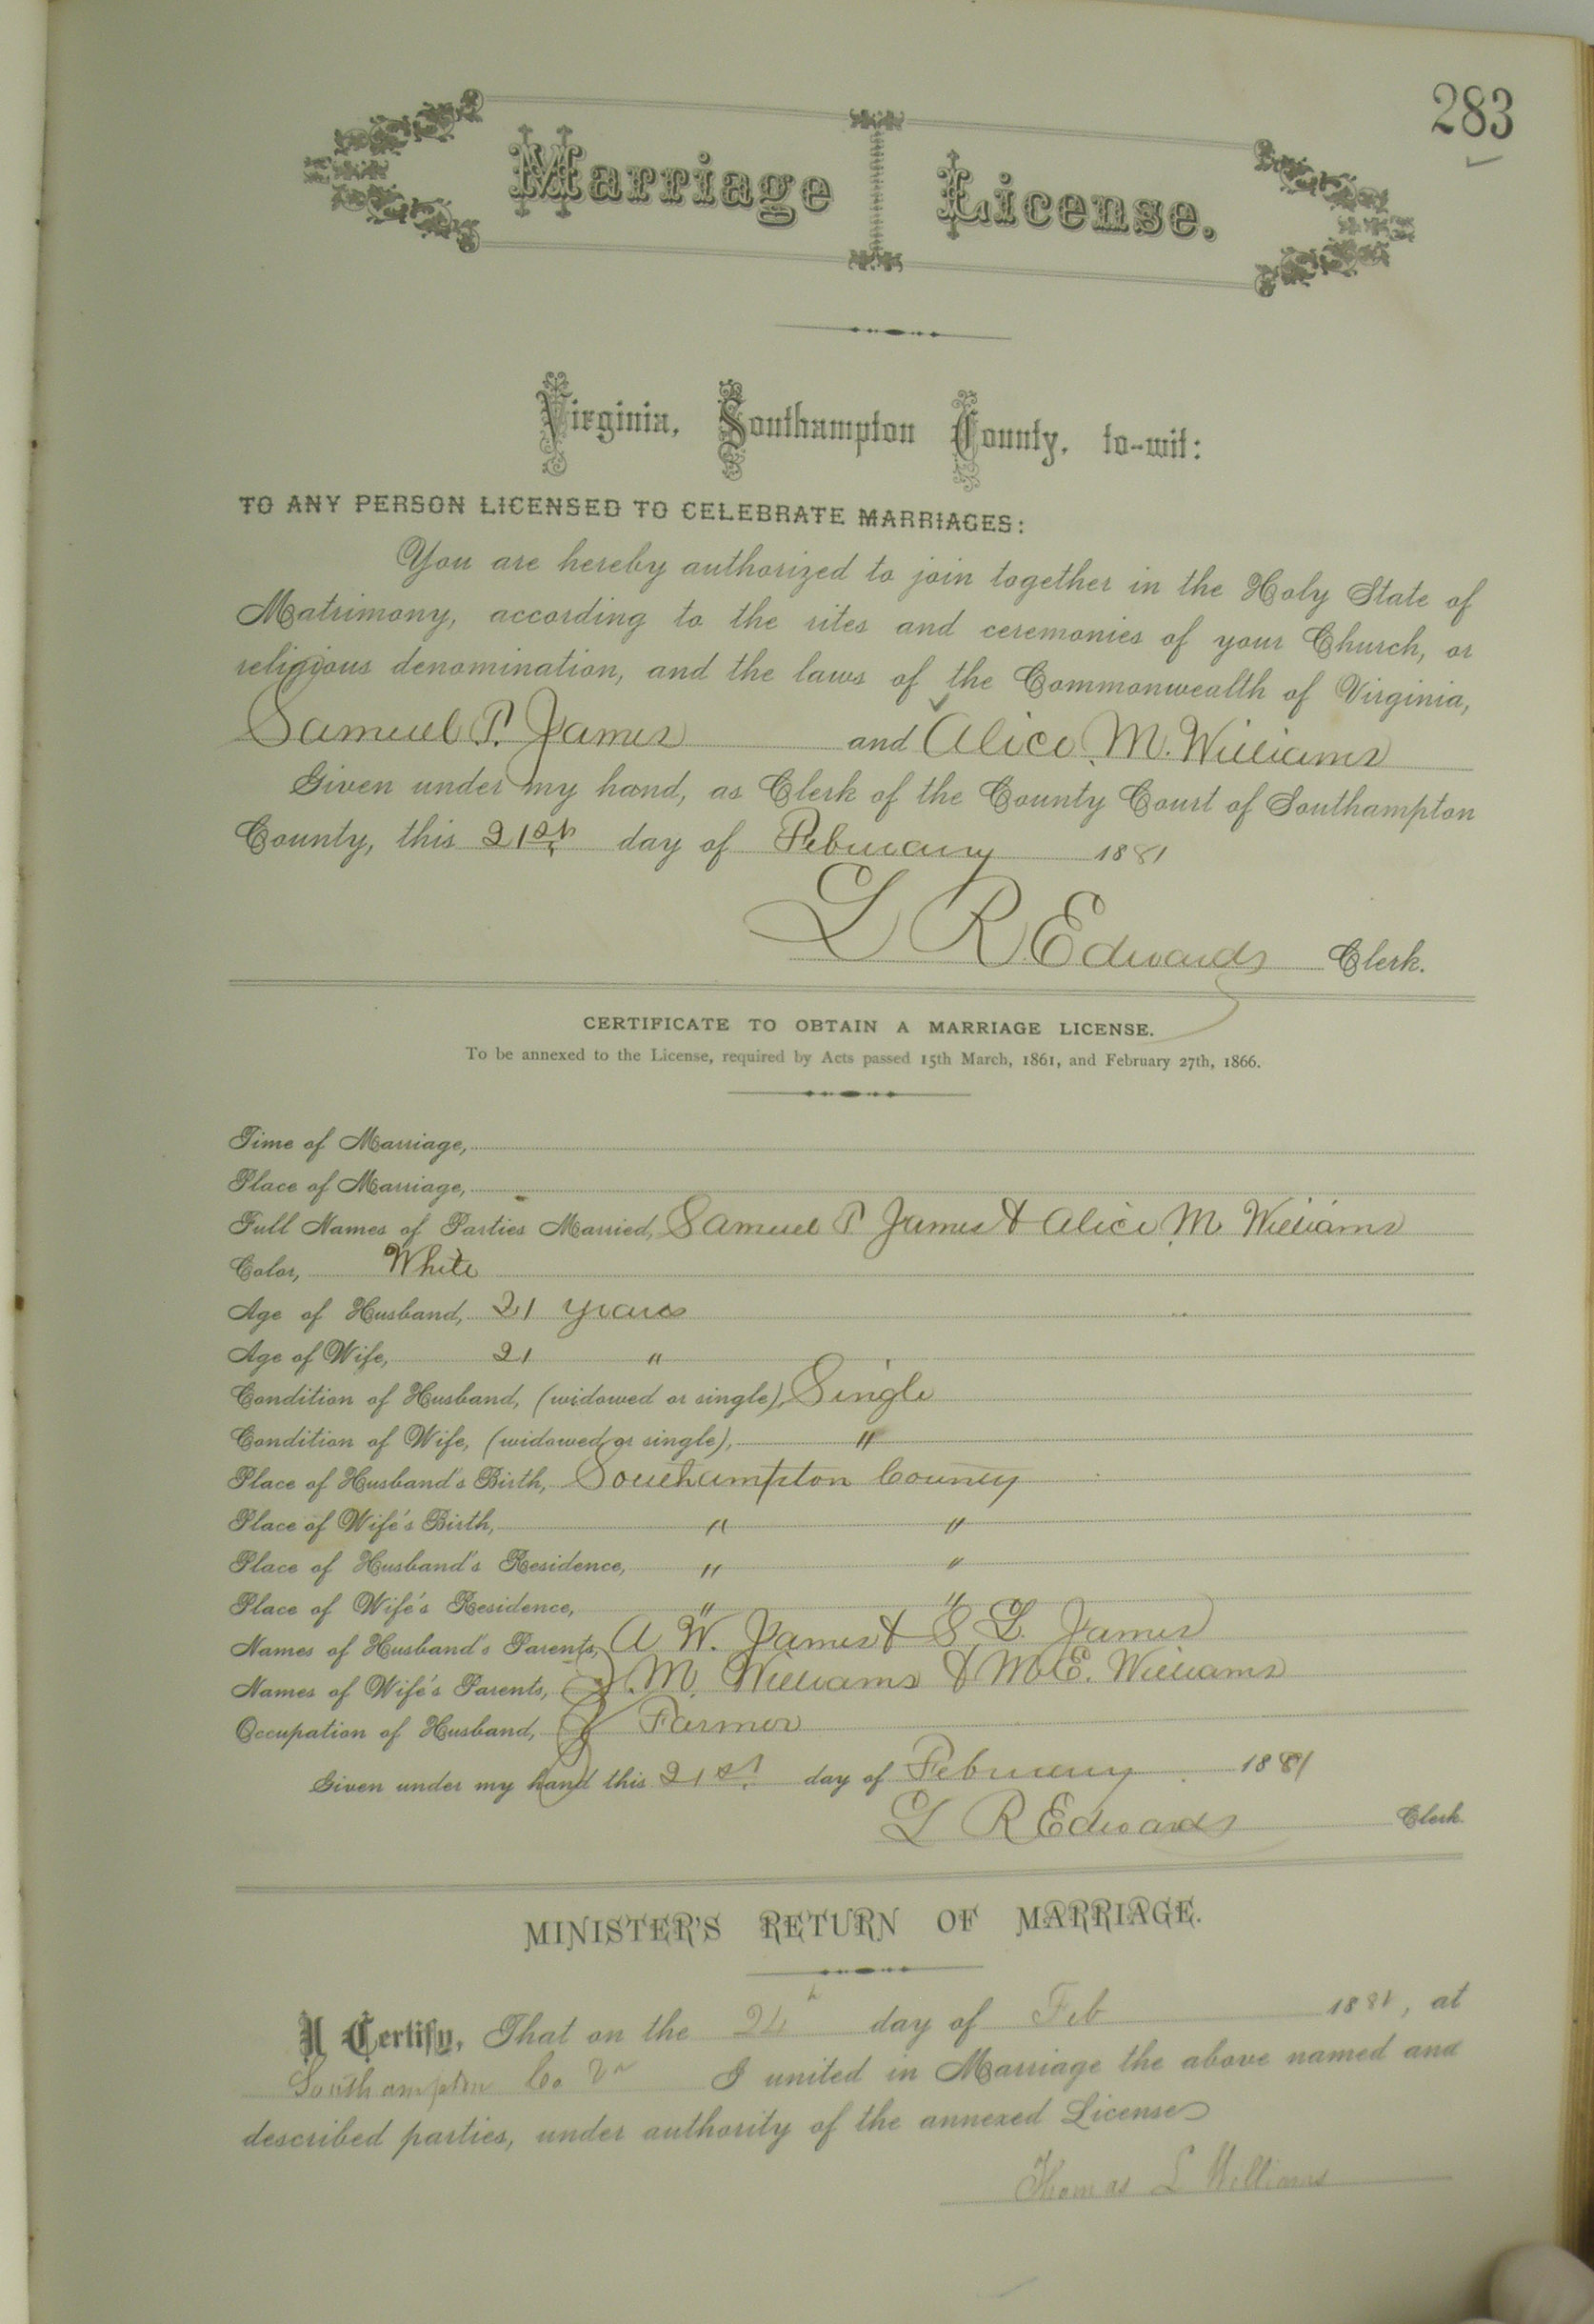 283
Marriage License.
Virginia, Southampton County, to-wit:
TO ANY PERSON LICENSED TO CELEBRATE MARRIAGES:
You are hereby authorized to join together in the Holy State of
Matrimony, according to the rites and ceremonies of your Church, or
religious denomination, and the laws of the Commonwealth of Virginia,
Samuel P. James and Alice M. Williams
Given under my hand, as Clerk of the County Court of Southampton
County, this 21st day of February 1881
L R Edwards Clerk.
CERTIFICATE TO OBTAIN A MARRIAGE LICENSE.
To be annexed to the License, required by Acts passed 15th March, 1861, and February 27th, 1866.
Time of Marriage,
Place of Marriage,
Full Names of Parties Married, Samuel P James & Alice M Williams
Color, White
Age of Husband, 21 years
Age of Wife, 21 "
Condition of Husband, (widowed or single), Single
Condition of Wife, (widowed or single), "
Place of Husband's Birth, Southampton County
Place of Wife's Birth, " "
Place of Husband's Residence, " "
Place of Wife's Residence, " "
Names of Husband's Parents, A W. James & S. L. James
Names of Wife's Parents, J. M. Williams & M. E. Williams
Occupation of Husband, Farmer
Given under my hand this 21st day of February 1881
L R Edwards Clerk.
MINISTER'S RETURN OF MARRIAGE.
I Certify, That on the day of Feb 1881, at
Southampton Co Va I united in Marriage the above named and
described parties, under authority of the annexed License
Thomas L Williams